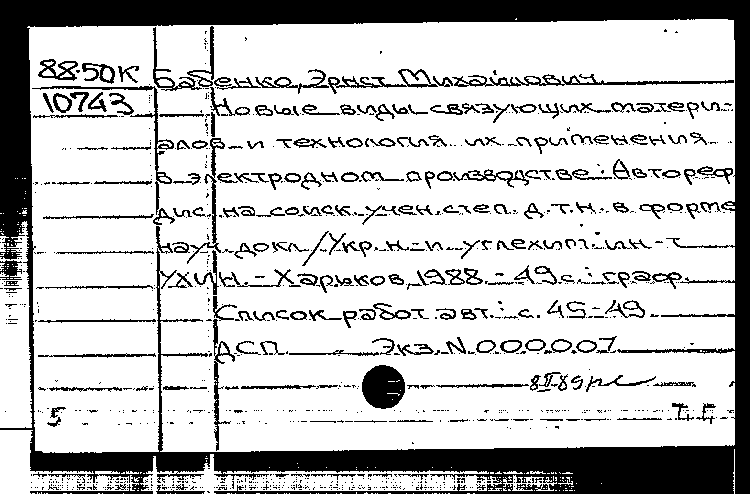 88-50К Бабенко, Эрнст Михайлович.
10743 Новые виды связующих матери-
алов и технология их применения
в электродном производстве: Автореф.
дис. на соиск. учен. степ. д.т.н. в форме
науч. докл / Укр. н.-и. углехим. ин-т
УХИН. - Харьков, 1988. - 49 с.: граф.
Список работ авт.: с. 45-49
ДСП Экз. N 000007
5